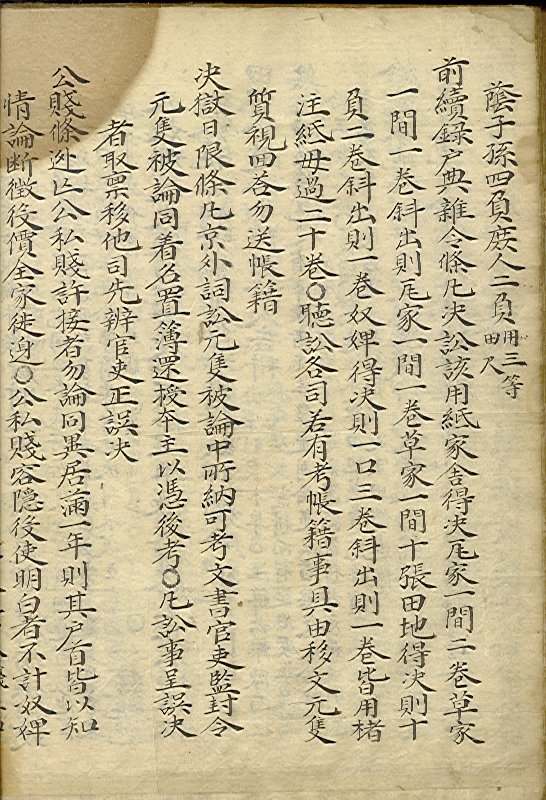 蔭子孫四負庶人二負用三等田尺
前續錄戶典雜令條凡決訟該用紙家舍得決瓦家一間二卷草家
一間一卷斜出則瓦家一間一卷草家一間十張田地得決則十
負二卷斜出則一卷奴婢得決則一口三卷斜出則一卷皆用楮
注紙毋過二十卷○聽訟各司若有考帳籍事具由移文元隻
質視回答勿送帳籍
決獄日限條凡京外詞訟元隻被論中所納可考文書官吏監封令
元隻被論同着名置簿還授本主以憑後考○凡訟事呈誤決
者取稟移他司先辨官吏正誤決
公賤條逃亡公私賤許接者勿論同異居滿一年則其戶首皆以知
情論斷徵役價全家徙邊○公私賤容隱役使明白者不計奴婢